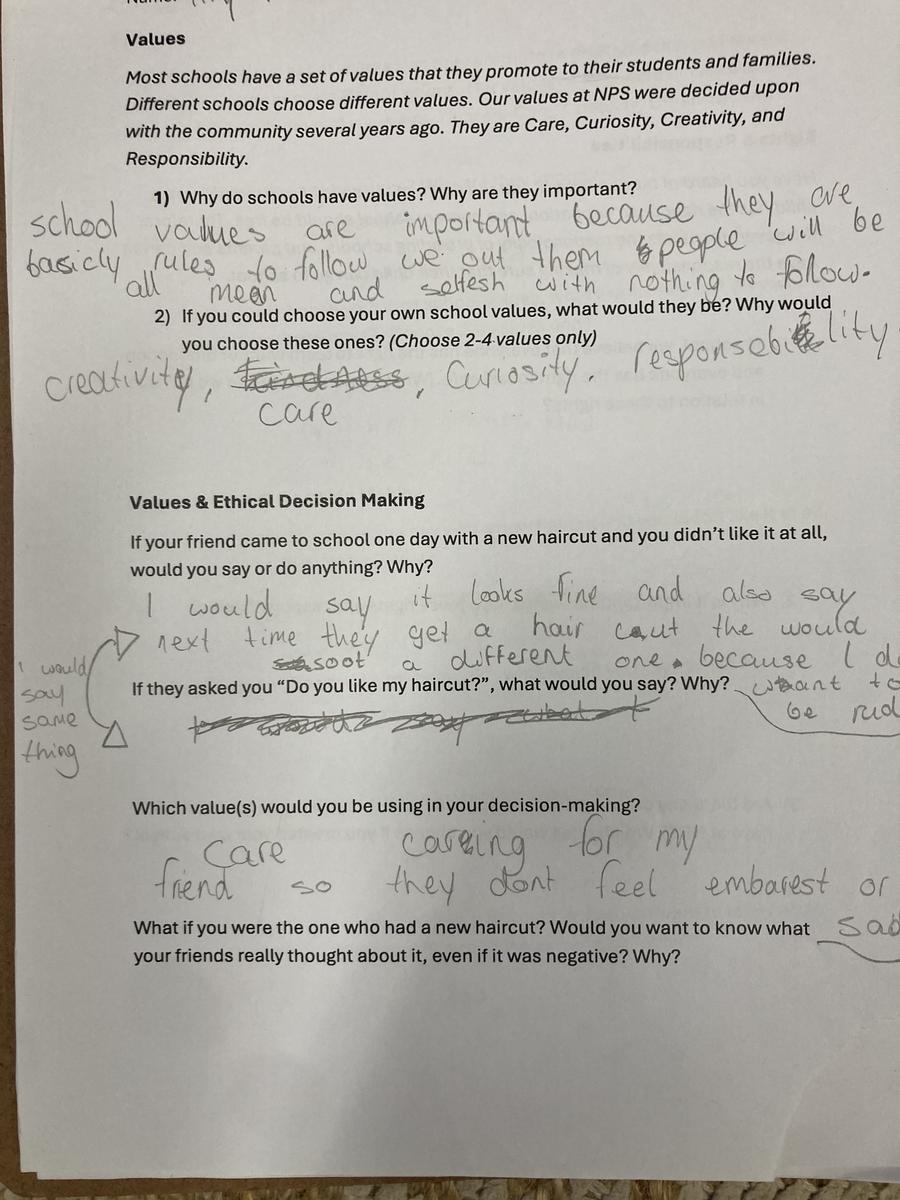 Values
Most schools have a set of values that they promote to their students and families.
Different schools choose different values. Our values at NPS were decided upon
with the community several years ago. They are Care, Curiosity, Creativity, and
Responsibility.
1) Why do schools have values? Why are they important?
school values are important because they are
basicly rules to follow we out them people will be
all mean and selfesh with nothing to follow.
2) If you could choose your own school values, what would they be? Why would
you choose these ones? (Choose 2-4 values only)
creativity, kindness, Curiosity. responsebility
care
Values & Ethical Decision Making
If your friend came to school one day with a new haircut and you didn't like it at all,
would you say or do anything? Why?
I would say it looks fine and also say
next time they get a hair cut the would
soot a different one. because I
If they asked you “Do you like my haircut?”, what would you say? Why?
want to
be
I would
say
same
thing
would say what I
Which value(s) would you be using in your decision-making?
Care careing for my
friend so they dont feel embarest or
sad
What if you were the one who had a new haircut? Would you want to know what
your friends really thought about it, even if it was negative? Why?